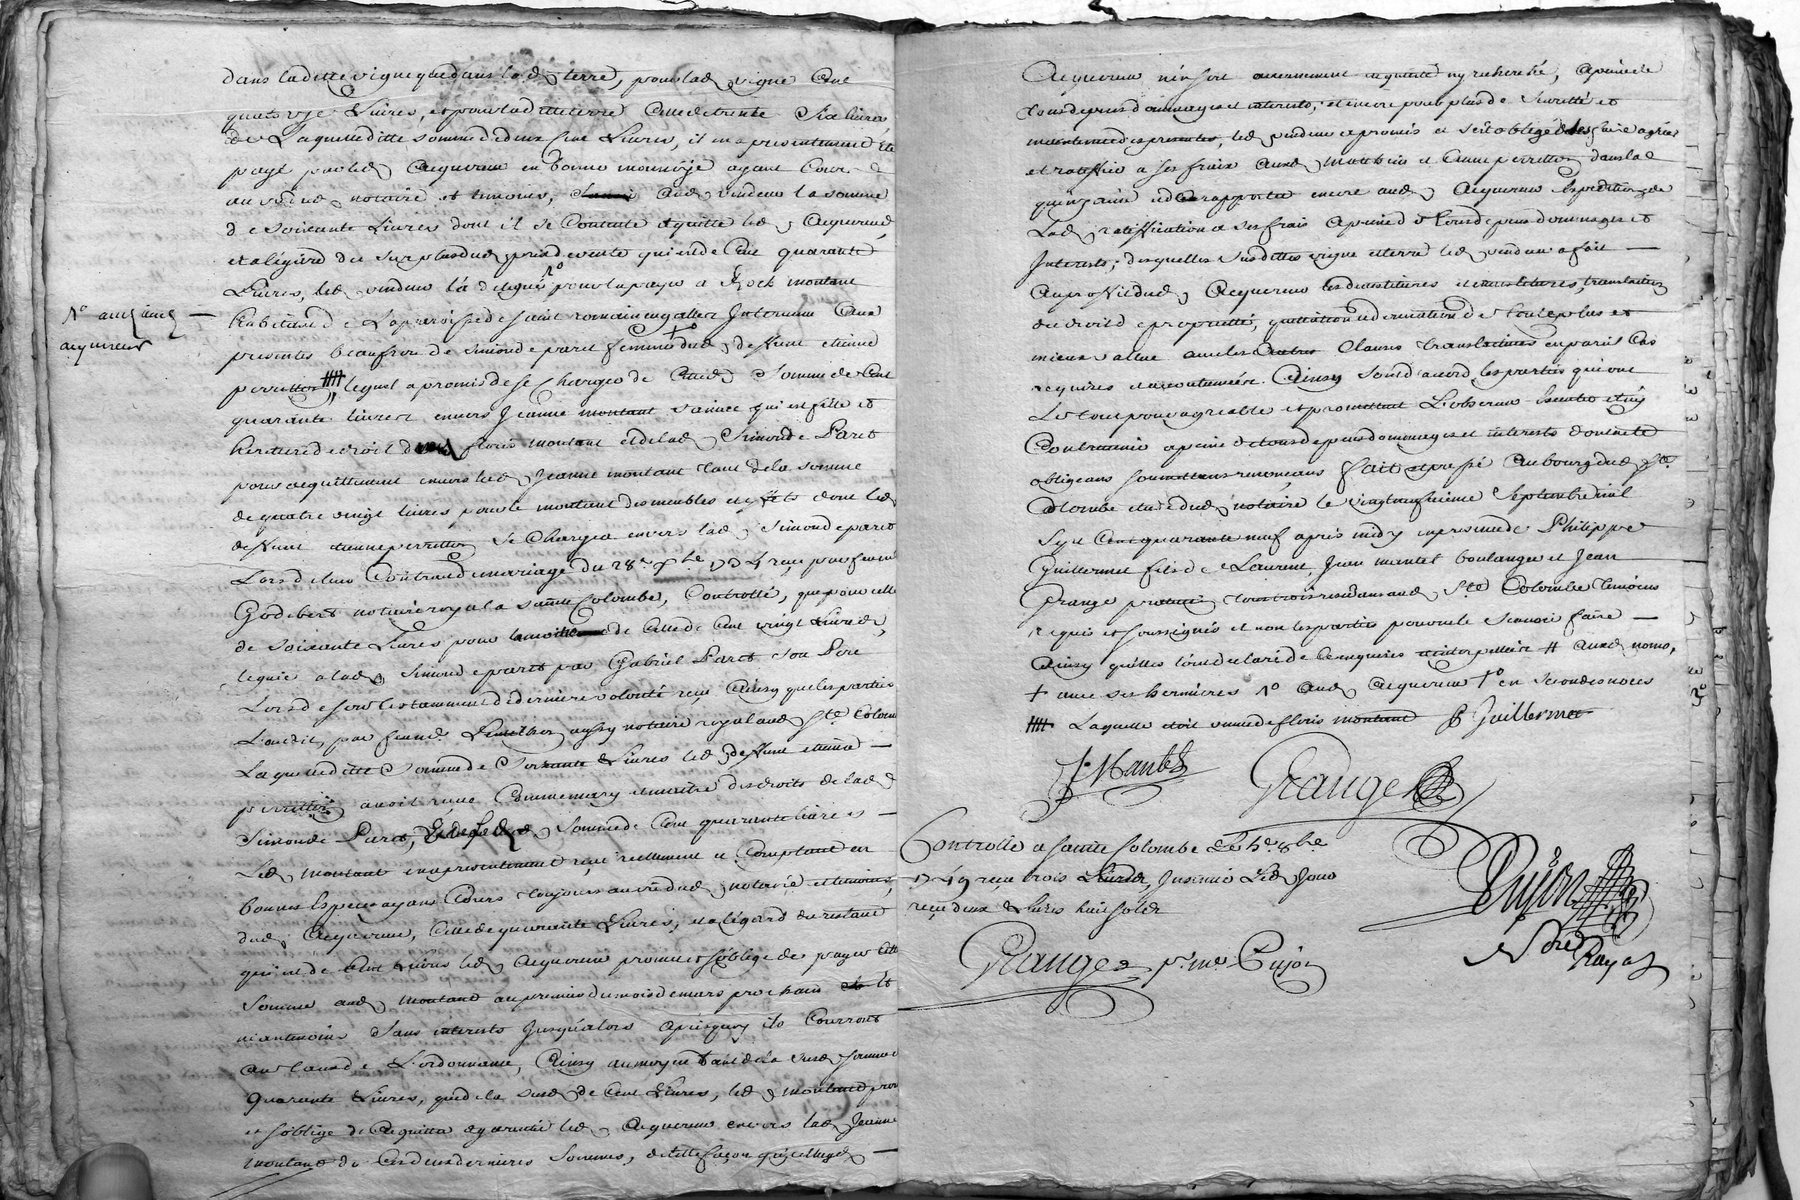 dans laditte vigne que dans lad. terre, pour lad. vigne Cent
quatorze Livres, et pour laditte terre Celle de trente Six livres
de Laquelle ditte somme de deux Cent Livres, il en a presentement été
payé par led. Acquereur en bonne monnoye ayant Cour
au vu dud. notaire et temoins, aud. vendeur la somme
de soixante Livres dont il se Contente et quitte led. Acquereur
et a légard du surplus dud. prix de vente qui est de Cent quarante
Livres, led. vendeur l'a delegué pour la payer a Rock montant
N° audz auud.
acquereur
habitant de La parroisse de saint romain en gallet Intervenu Aux
presentes beaufrere de simonde paret femme dud. deffunt etienne
perretton, lequel a promis de se Charger de lad. Somme de Cent
quarante livres envers Jeanne montant sa niece qui est fille et
heritiere de droit de floris montant et de lad. Simonde Paret
pour acquittement envers lad. Jeanne montant tant de la somme
de quatre vingt livres pour le montant des meubles et effets dont led.
deffunt etienne perretton se Chargea envers lad. Simonde paret
Lors de leur Contract de mariage du 28e xbre 1734 reçu par feu me
Godebert notaire royal a sainte Colombe, Controllé, que pour celle
de soixante Livres pour la moitié de Celle de Cent vingt Livres,
leguée a lad. Simonde paret par Gabriel Paret son Pere
Lors de son testament de derniere volonté reçu Ainsy que les parties
L'ont dit, par feu me aussy notaire royal aud. Ste Colombe
Laquelle ditte Somme de Soixante Livres led. deffunt etienne
perretton avoit reçue Comme mary et maitre des droits de lad.
Simonde Paret, Somme de Cent quarante livres
Led. montant en a presentement reçu reellement et Comptant en
bonnes Especes ayant Cours toujours au vu dud. notaire et temoins,
dud. Acquereur, Celle de quarante Livres, et a légard du restant
qui est de Cent Livres led. Acquereur promet et s'oblige de payer cette
Somme aud. montant au premier du mois de mars prochain et
neantmoins sans interests Jusqu'alors apres quoy ils Courront
au taux de L'ordonnance, Ainsy au moyen tant de la susd. somme de
quarante Livres, que de la susd. de Cent Livres, led. montant promet
et s'oblige d'acquitter et garentir led. Acquereur envers lad. Jeanne
montant de Ces deux dernieres Sommes, de telle façon que led.
Acquereur n'en soit aucunement inquieté ny recherché, a peine de
tous depens dommages et interests; et encore pour plus de Seuretté et
maintenue des presentes, led. vendeur a promis et s'est obligé de faire agréer
et ratiffier a ses fraix Aux. Matthieu et Anne perretton dans la
quinzaine et de rapporter encore aud. Acquereur Expedition de
Lad. ratiffication a ses frais a peine de tous depens dommages et
Interests; desquelles susdittes vigne et terre led. vendeur a fait
Au proffit dud. Acquereur les devestitures et investitures, translation
du droit de proprietté, quittation et demission de toutte plus et
mieux vallue avec les Clauses translatives en pareil Cas
requises et accoutumées. Ainsy sont d'acord les parties qui ont
Le tout pour agreable et promettent L'observer
Contrevenir a peine de tous depens dommages et interests
obligeans soumettans renonçans fait et passé Au bourg dud. Ste
Colombe etude dud. notaire le vingtneufvieme Septembre mil
Sept Cent quarante neuf apres midy en presence de Philippe
Guillermet fils de Laurent, Jean mantel boulanger et Jean
Grange praticien tous trois residans aud. Ste Colombe temoins
requis et soussignés et non les parties pour ne le Scavoir faire
Ainsy qu'elles l'ont declaré de ce enquises et interpellées # auxd. noms,
+ avec ses hernieres 1° Aud. Acquereur †° en secondes noces
#### Laquelle etoit veuve de floris montant P Guillermet
J. Mantel Grange
Pujon
Nre Royal
Controllé a sainte Colombe Le 4e 8bre
1749 reçu trois Livres, Insinué Led. Jour
reçu deux Livres huit sols
Grange pr. mr Pujon